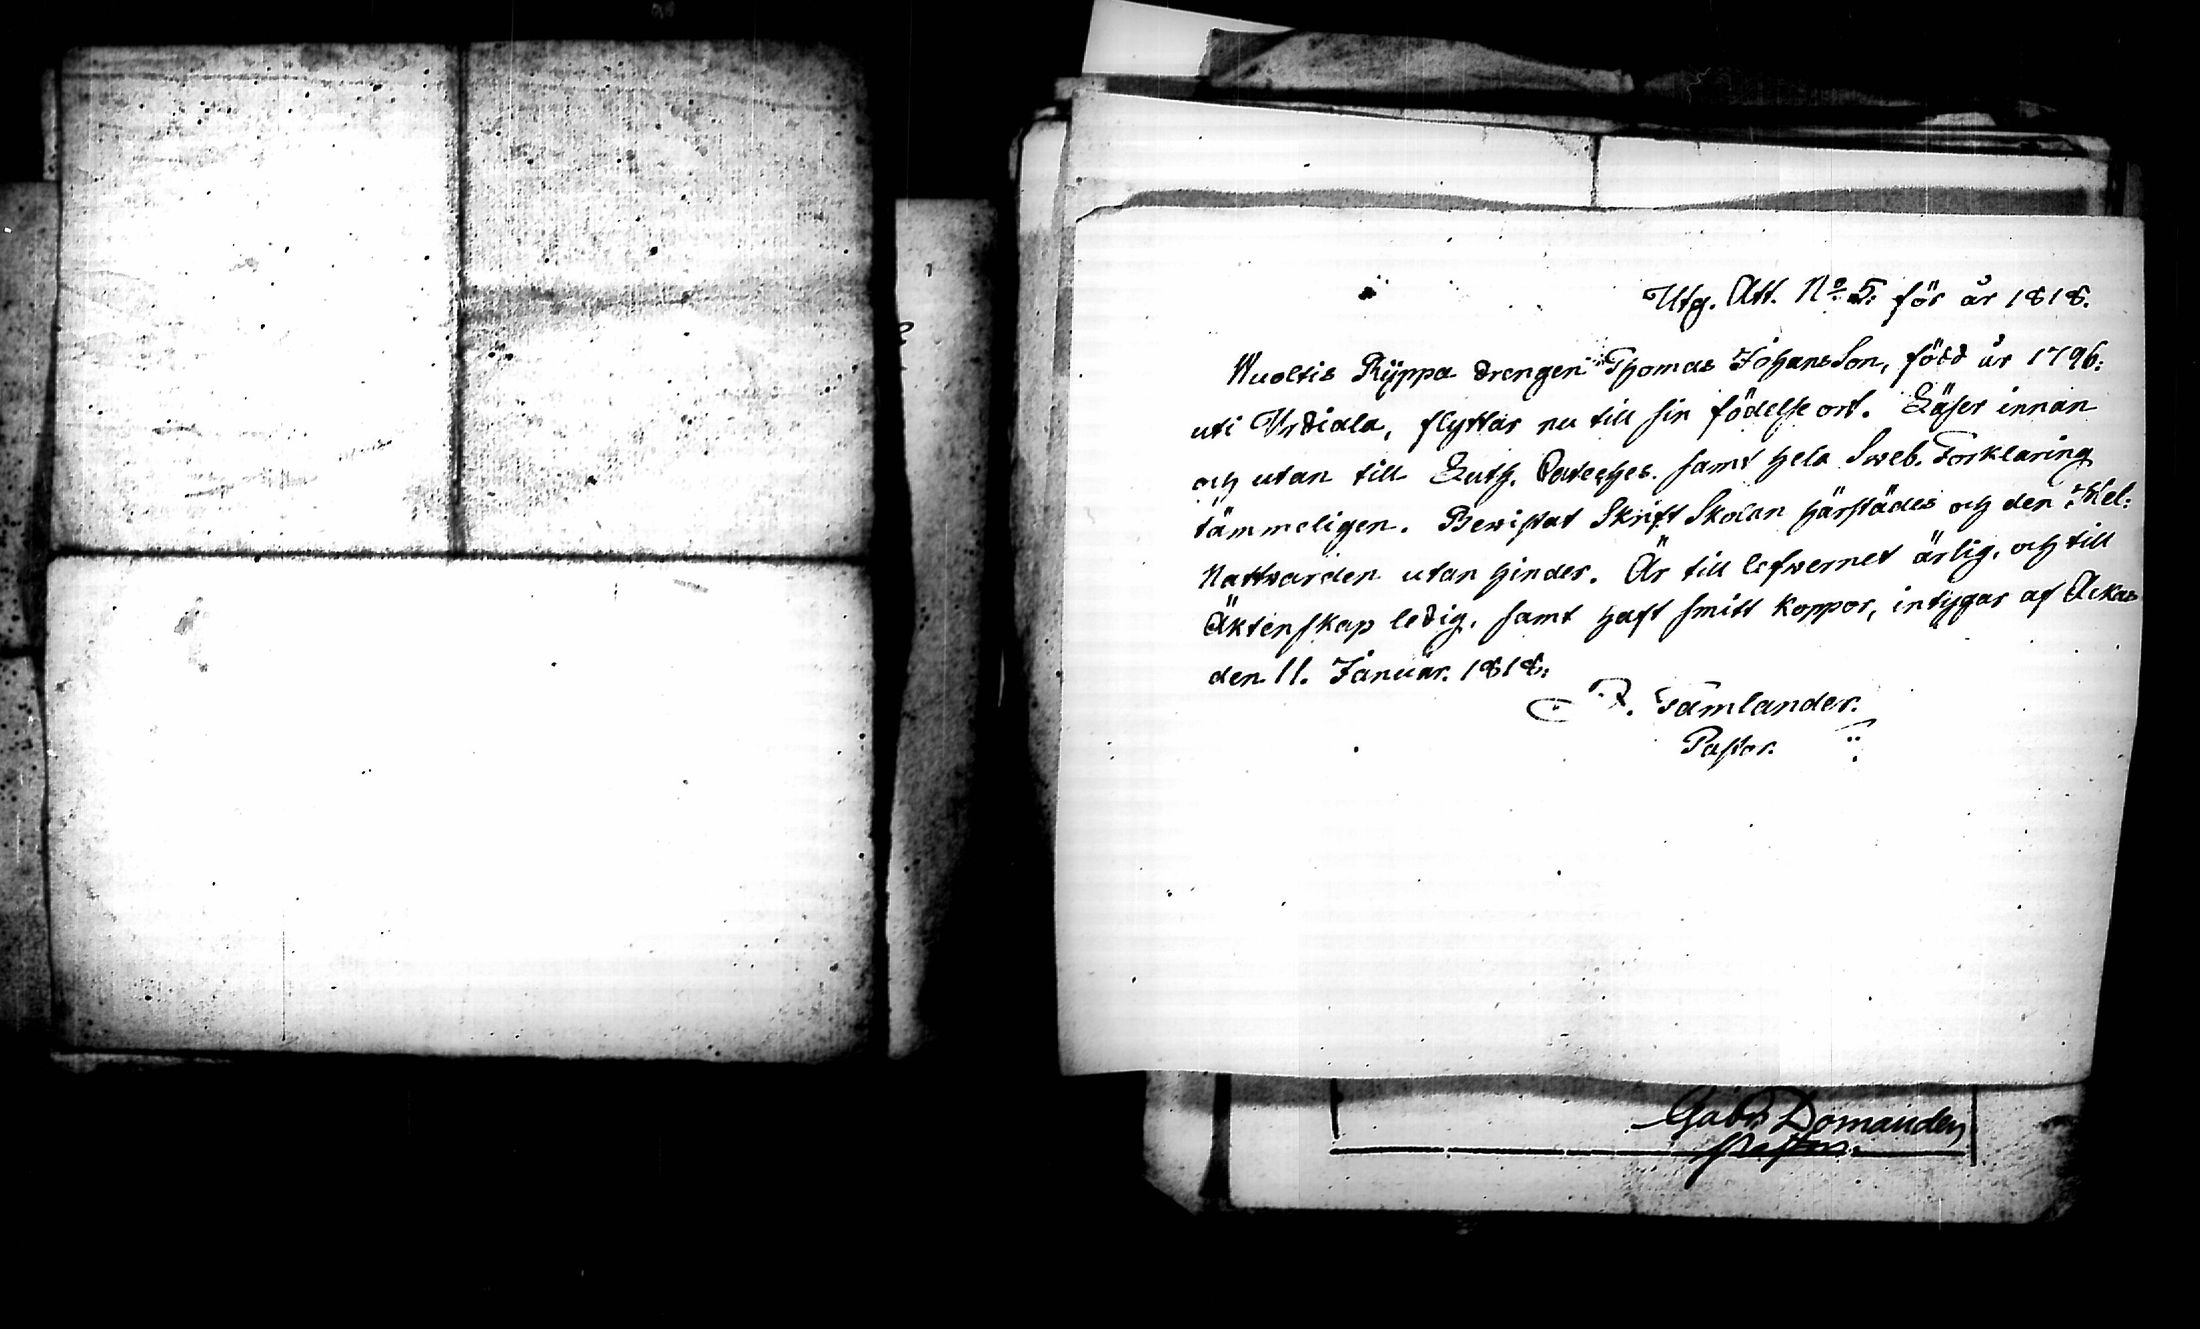 Utg. Att. No. 5. för år 1818.
Wuoltis Ryppä drengen Thomas JohansSon, född år 1796.
uti Urdiala, flyttar nu till sin födelse ort. Läser innan
och utan till Luth. Cateches. samt hela Sweb. Förklaring
tämmeligen. Bewistat Skrift Skolan härstädes och den Hel.
Nattvarden utan hinder. Är till lefwernet ärlig, och till
Äktenskap ledig, samt haft smitt koppor, intygar af Ackas
den 11. Januar. 1818.
Tämlander.
Pastor.
Gabr. Domander
Pastor.